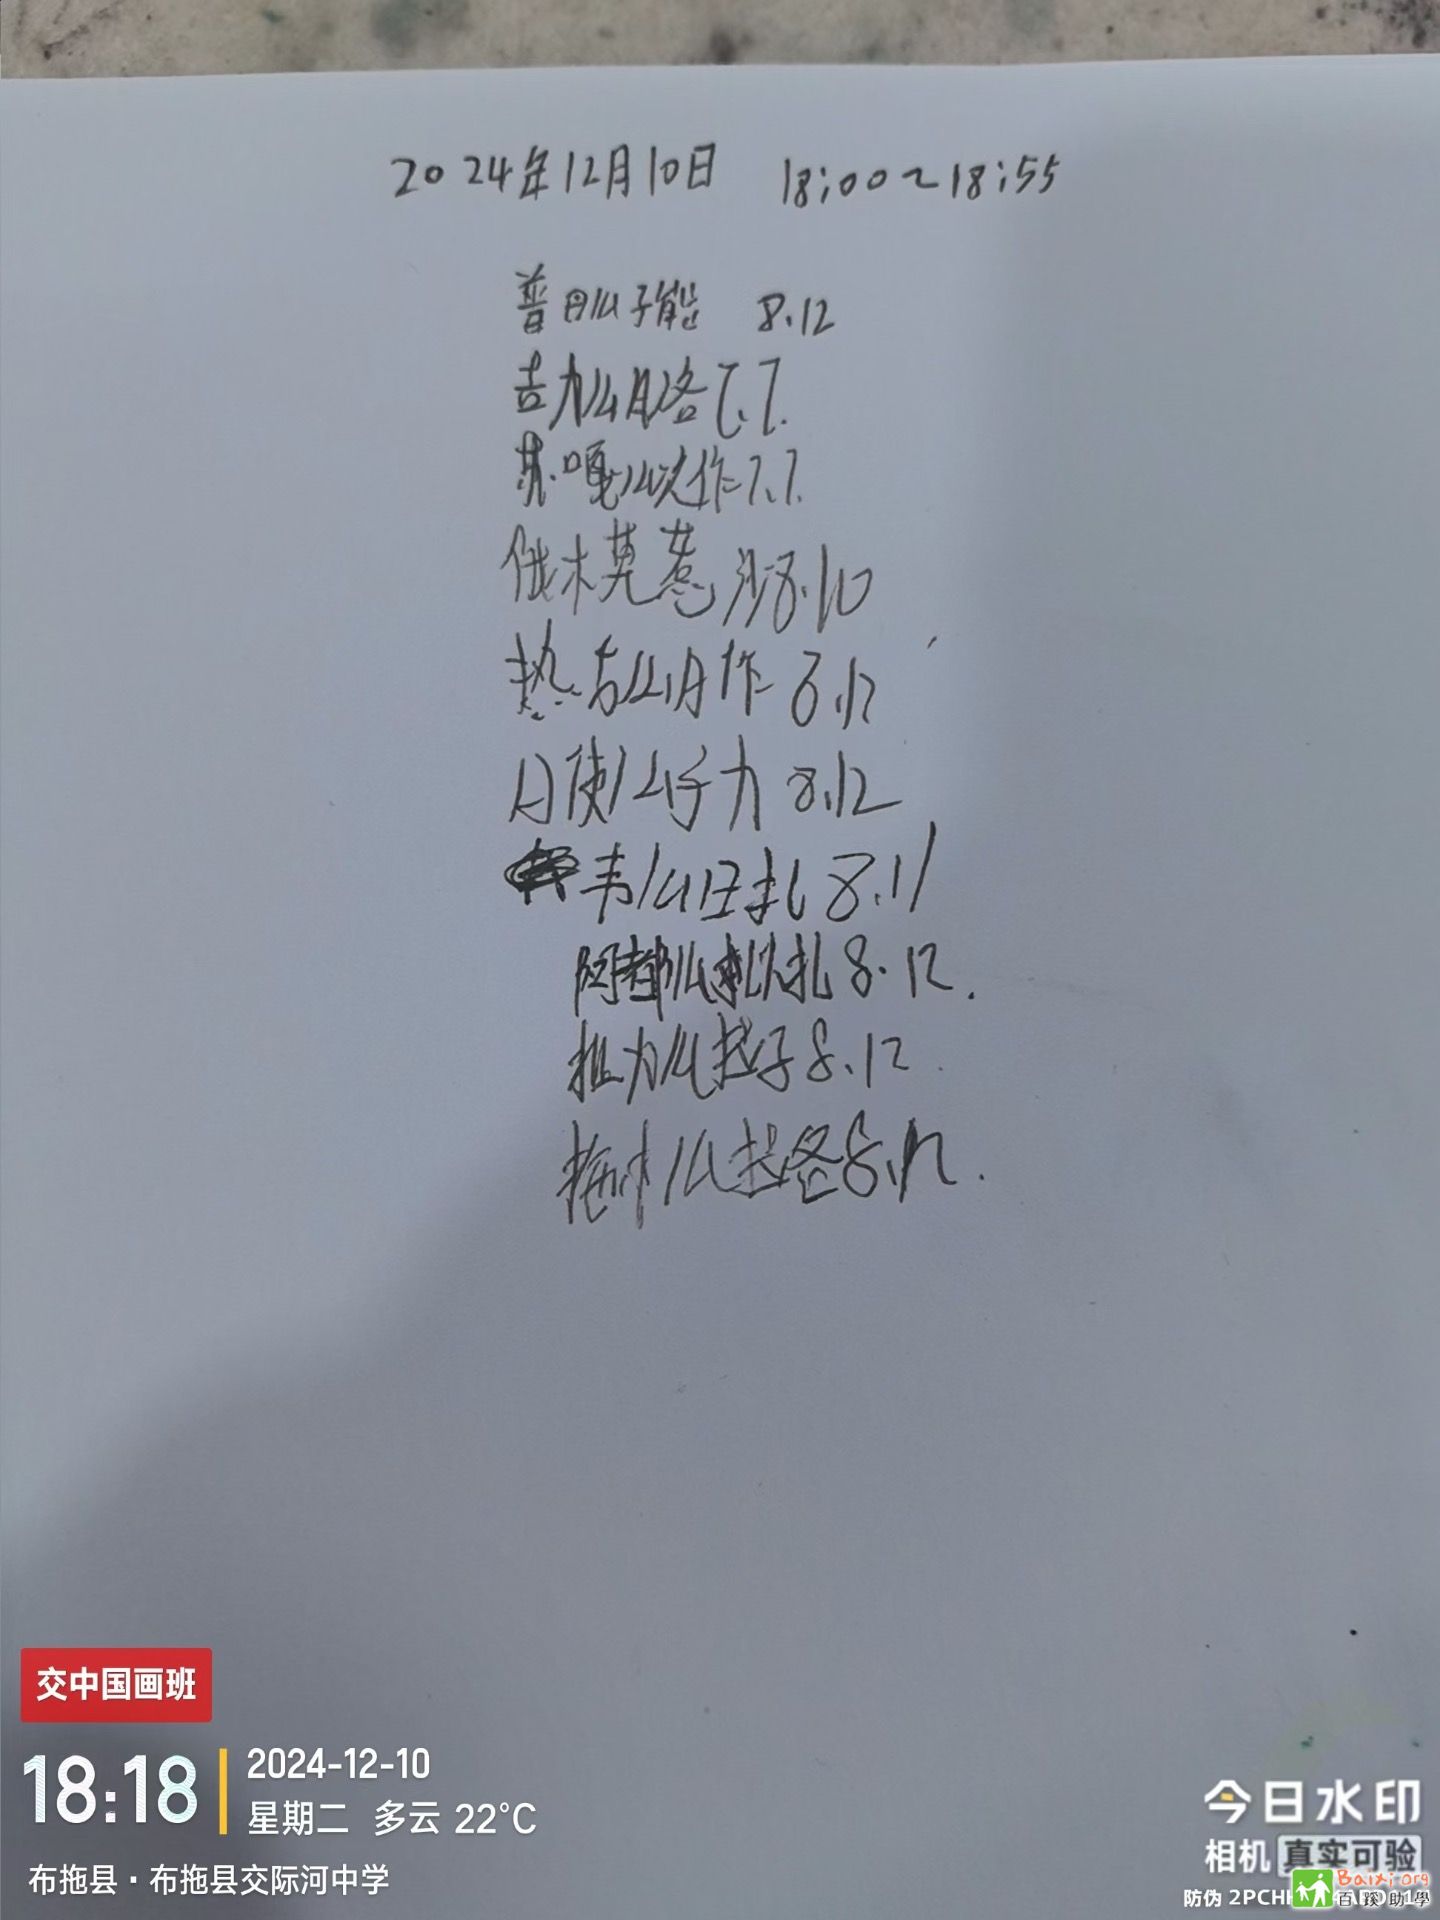 2024年12月10日 18:00~18:55
普日么子能 8.12
吉力么月洛 7.7.
苏嘎么次作 7.7.
俄木莫惹 8.10
热 么月作 8.12
日使么子力 8.12
韦么日扎 8.11
阿都么扎 扎 8.12.
力么拉子 8.12
么拉各 8.12.
交中国画班
18:18
2024-12-10
星期二 多云 22°C
布拖县·布拖县交际河中学
今日水印
相机 真实可验
防伪 2PCH
Baixi.org
百蹊助學